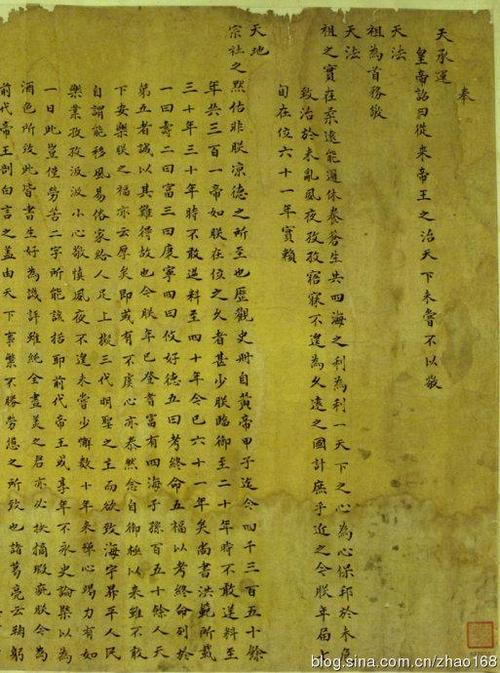 奉
天承運
皇帝詔曰從來帝王之治天下未嘗不以敬
天法
祖為首務敬
天法
祖之實在柔遠能邇休養蒼生共四海之利為利一天下之心為心保邦於未危
致治於未亂夙夜孜孜寤寐不遑為久遠之國計庶乎近之今朕年屆七
旬在位六十一年實賴
天地
宗社之默佑非朕涼德之所至也歷觀史冊自黃帝甲子迄今四千三百五十餘
年共三百一帝如朕在位之久者甚少朕臨御至二十年時不敢逆料至
三十年三十年時不敢逆料至四十年今已六十一年矣尚書洪範所載
一曰壽二曰富三曰康寧四曰攸好德五曰考終命五福以考終命列於
第五者誠以其難得故也今朕年已登耆富有四海子孫百五十餘人天
下安樂朕之福亦云厚矣即或有不虞心亦泰然念自御極以來雖不敢
自謂能移風易俗家給人足上擬三代明聖之主而欲致海宇昇平人民
樂業孜孜汲汲小心敬慎夙夜不遑未嘗少懈數十年來殫心竭力有如
一日此豈僅勞苦二字所能該括耶前代帝王或享年不永史論槩以為
酒色所致此皆書生好為譏評雖純全盡美之君亦必抉摘瑕疵朕今為
前代帝王剖白言之蓋由天下事繁不勝勞憊之所致也諸葛亮云鞠躬
blog.sina.com.cn/zhao168